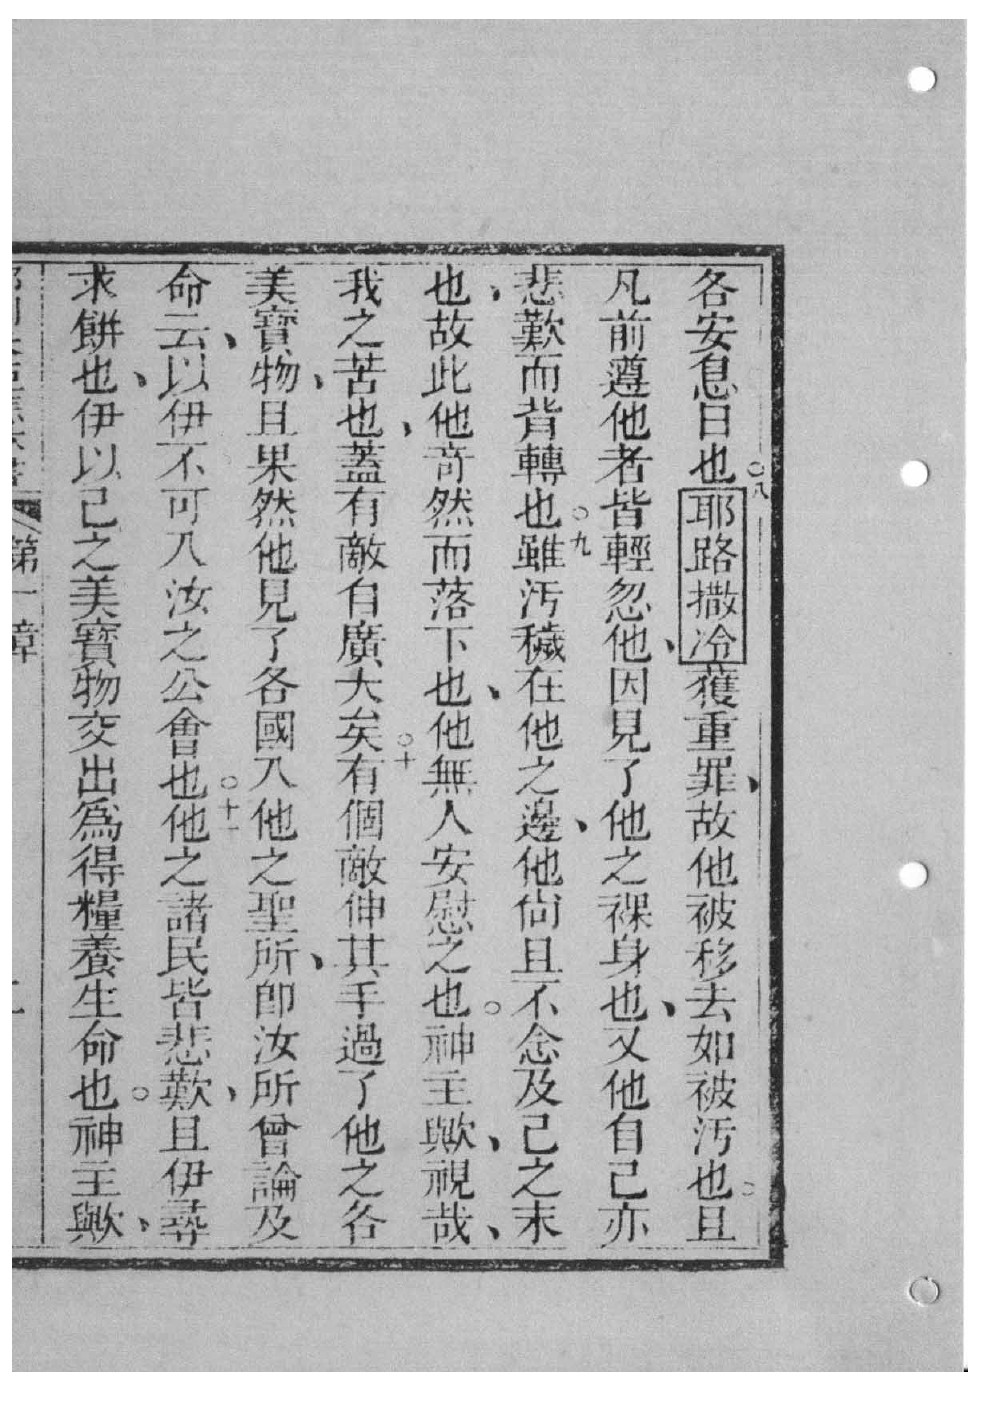 各安息日也○八耶路撒冷獲重罪、故他被移去如被汚也○且
凡前遵他者皆輕忽他、因見了他之裸身也、又他自己亦
悲歎而背轉也○九雖汚穢在他之邊、他尙且不念及己之末
也、故此他奇然而落下也、他無人安慰之也○神主歟、視哉、
我之苦也、蓋有敵自廣大矣○十有個敵伸其手過了他之各
美寶物、且果然他見了各國入他之聖所、卽汝所曾論及
命云、以伊不可入汝之公會也○十一他之諸民皆悲歎、且伊尋
求餅也、伊以己之美寶物交出爲得糧養生命也○神主歟、
第一章